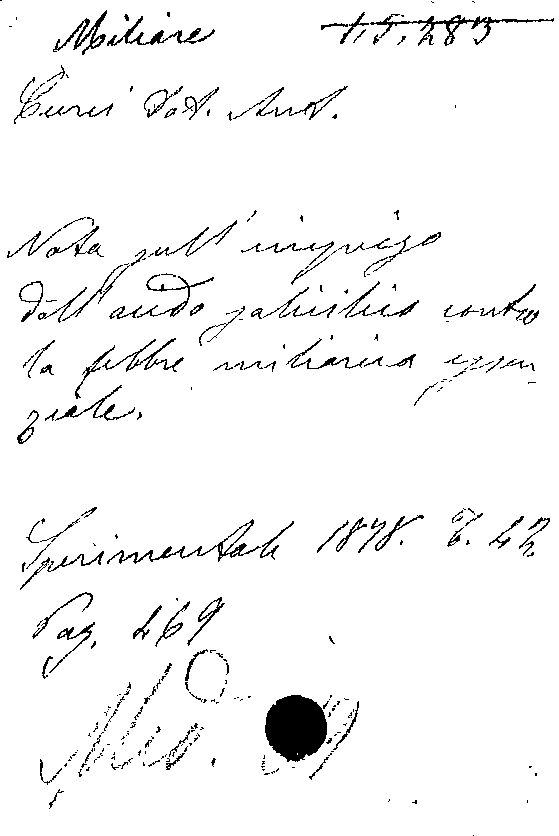 Miliare 1, 5, 283
Curci Dot. Ant.
Nota sull'impiego
dell'acido salicilico contro
la febbre miliarica essen-
ziale.
Sperimentale 1878. T. 42
Pag. 269
Med.